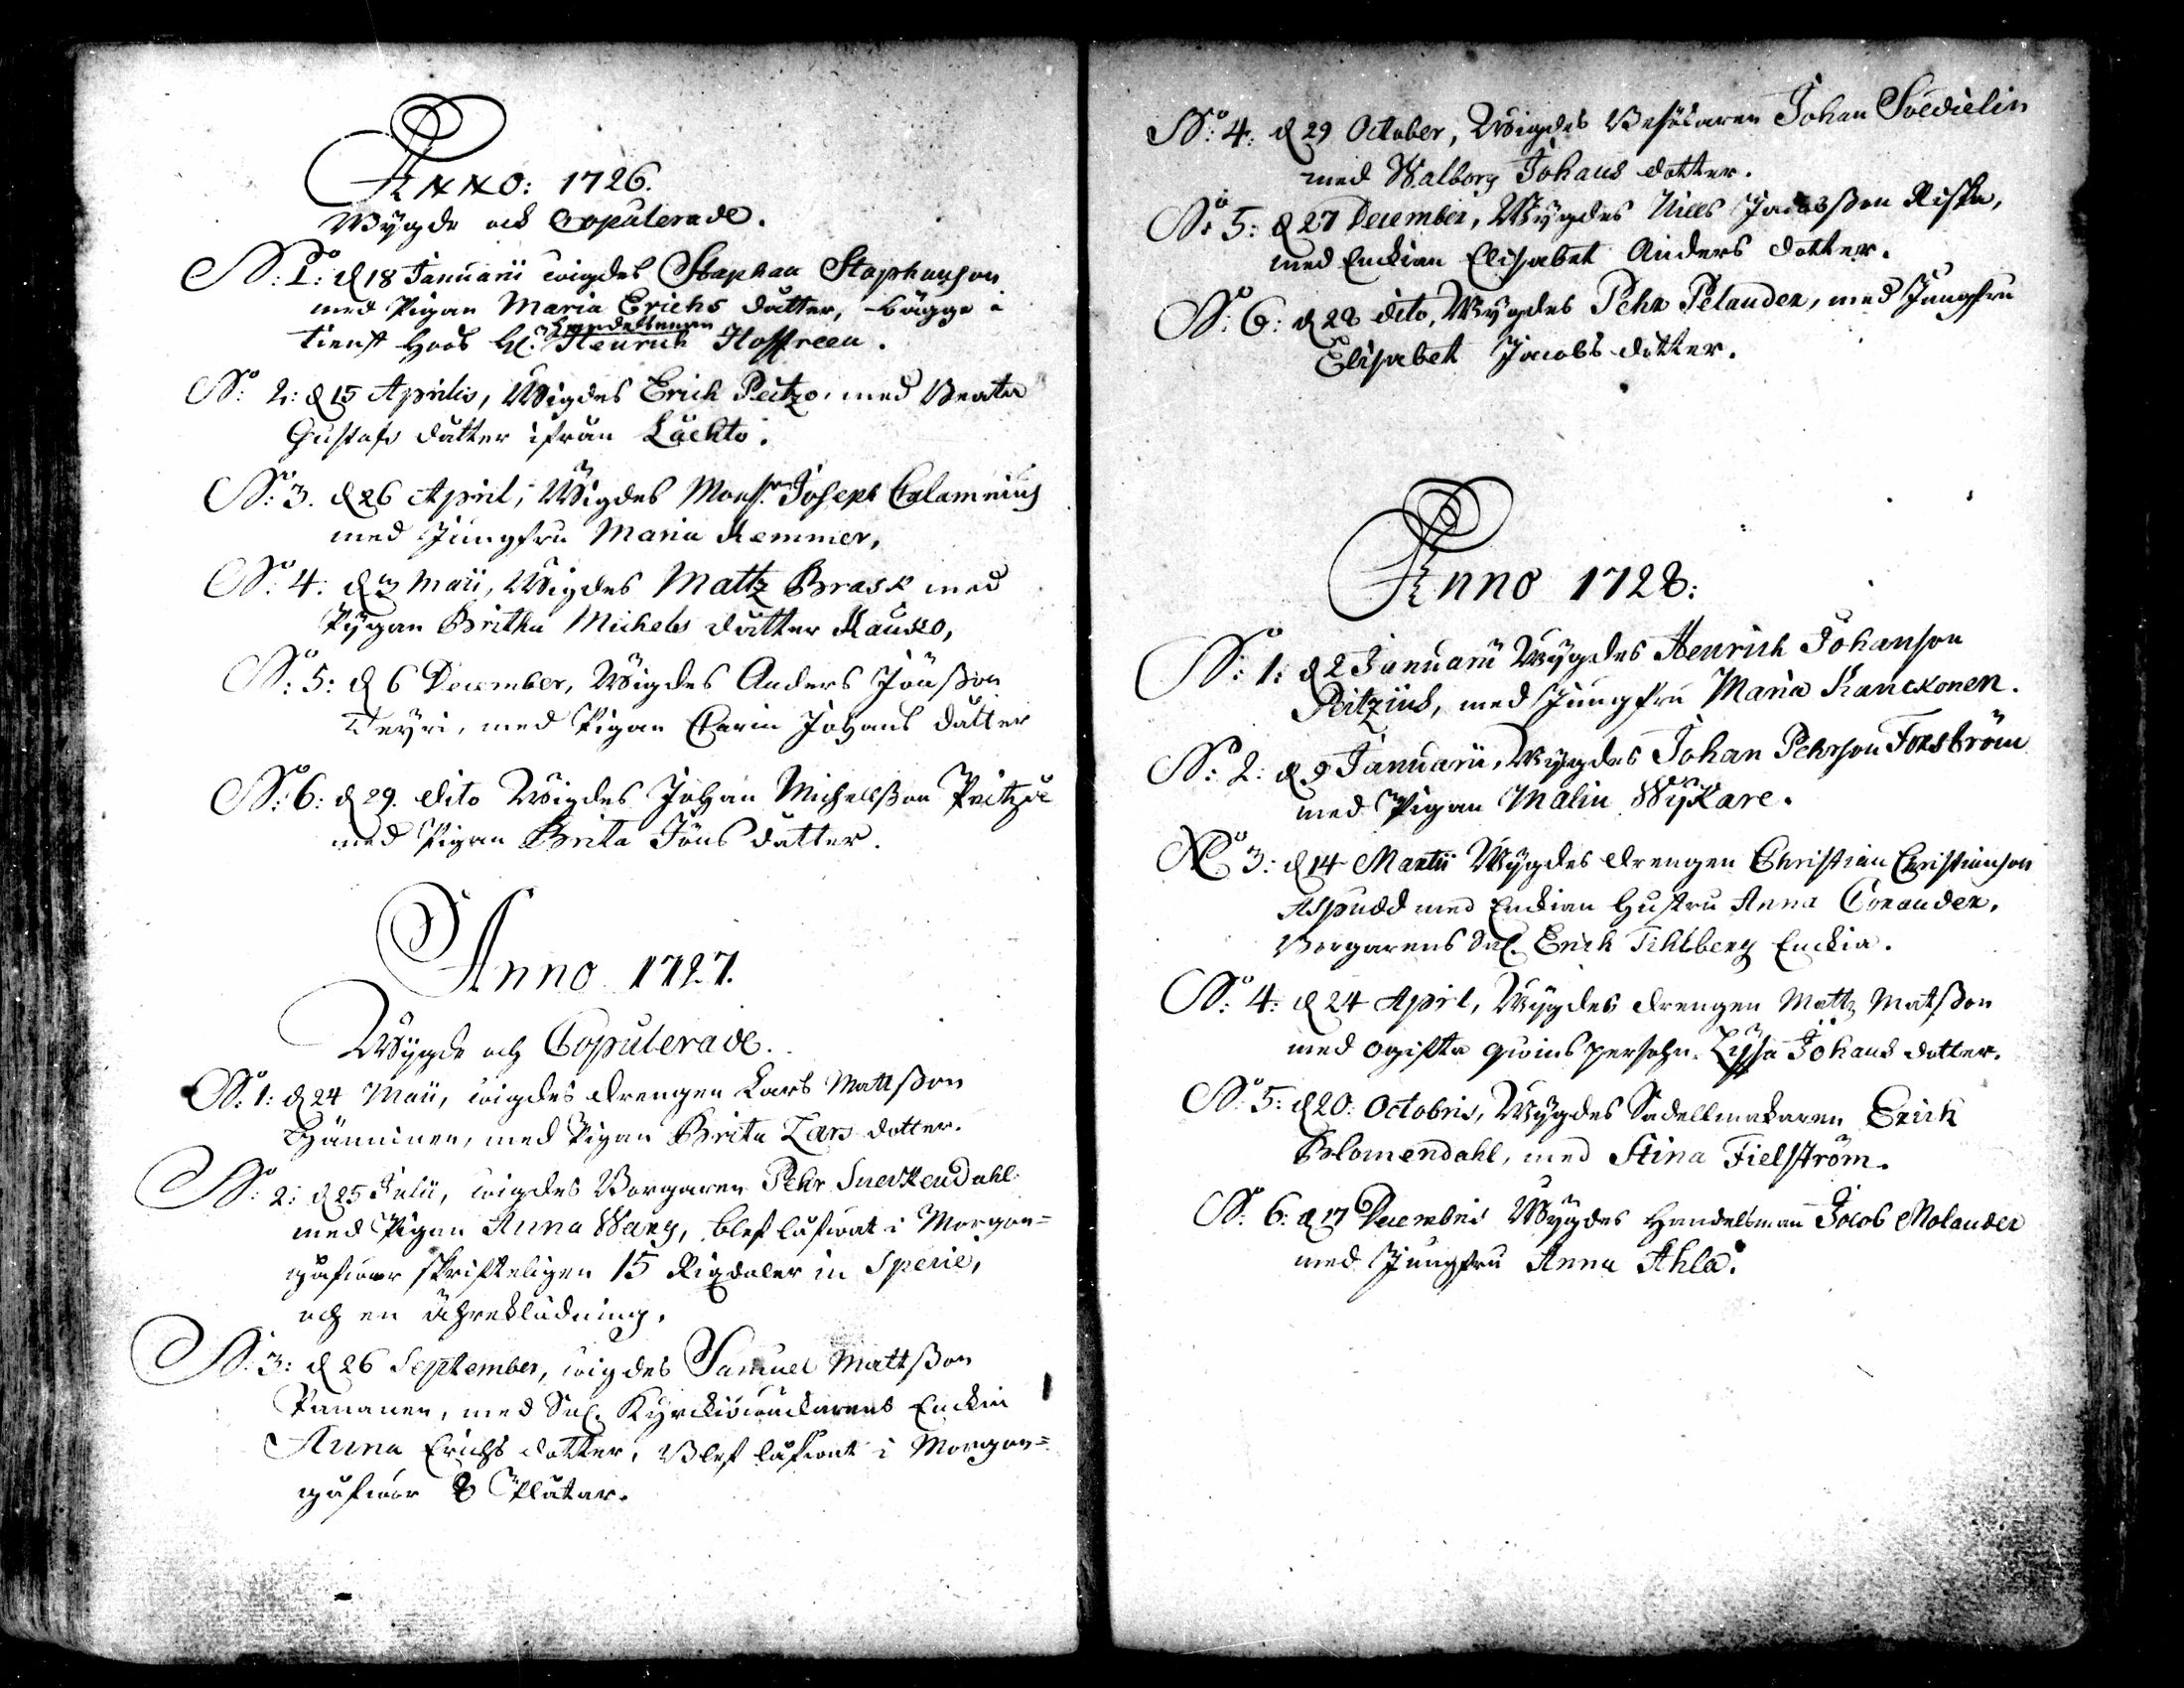 Anno: 1726.
Wygde och Copulerade.
No: 1: d 18 Januarii wigdes Staphan Staphanson
med Pigan Maria Erichs dåtter, bägge i
Handelsman
tienst hoos H: Henrich Hoffreen.
No: 2: d 15 Aprilis, Wigdes Erich Peitzo, med Beata
Gustafs dåtter ifrån Lächto.
No: 3. d 26 April, Wigdes Mons: Joseph Calamnius
med Jungfru Maria Kemmer,
No: 4. d 3 Maii, Wigdes Mattz Brask med
Pygan Britha Michels dåtter Kauko,
No: 5: d 6 December, Wigdes Anders Jönßon
Teyri, med Pigan Carin Johans dåtter
No: 6: d 29. dito Wigdes Johan Michellßon Peitzo
med Pigan Brita Jöns dåtter.
Anno 1727.
Wygde och Copulerade.
No: 1: d 24 Maii, wigdes drengen Lars Mattßon
Hänninen, med Pigan Brita Lars dotter.
No: 2: d 25 Julii, wigdes Borgaren Pehr Sneckendahl
med Pigan Anna Wang, blef låfwat i Morgon=
gåfwor skrifteligen 15 Rigdaler in Specie,
och en Ährekládning.
No: 3: d 26 September, wigdes Samuel Mattßon
Pananen, med Sal. Kyrckiowäckarens Enckia
Anna Erichs dotter, Blef låfwat i Morgon=
gåfwor 8 Plåtar.
No: 4: d 29 October, Wigdes Besökaren Johan
med Walborg Johans dotter.
No: 5: d 27 December, Wygdes Nills Jacobßon Riska,
med Enckian Elisabet Anders dotter.
No: 6: d 28 dito, Wygdes Pehr Pelander, med Jungfru
Elisabet Jacobs dotter.
Anno 1728:
No: 1: d 2 Januarii Wygdes Henrich Johanson
Peitzius, med Jungfru Maria Kanckonen.
No: 2: d 9 Januarii, Wygdes Johan Pehrson Forsström
med Pigan Malin Wykare.
No: 3: d 14 Martii Wygdes drengen Christian Christianson
Aspudd med Enckian Hustru Anna Corander,
Borgarens Sal. Erich Tihlberg Enckia.
No: 4: d 24 April, Wygdes drengen Mattz Matßon
med ogifta qwins persohn Lysa Johans dotter.
No: 5: d 20: Octobris, Wygdes Sadellmakaren Erich
Blomendahl, med Stina Fielström.
No: 6: d 17 Decembris Wygdes Handelsman Jacob Molander
med Jungfru Anna Ahla.